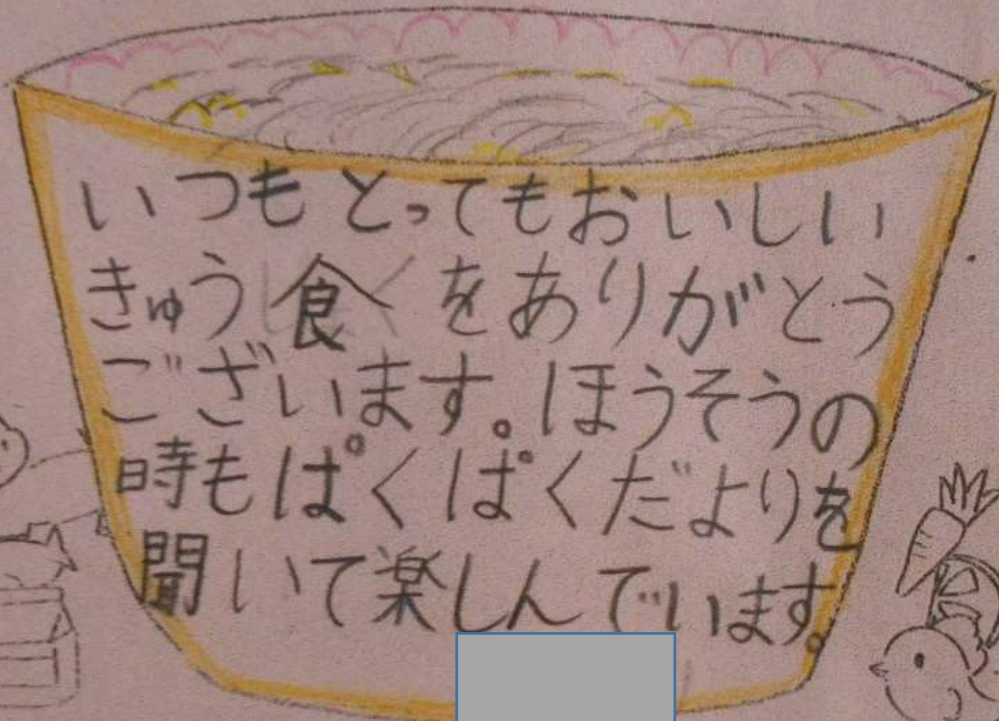 いつもとってもおいしい
きゅう食をありがとう
ございます。ほうそうの
時もぱくぱくだよりを
聞いて楽しんでいます。